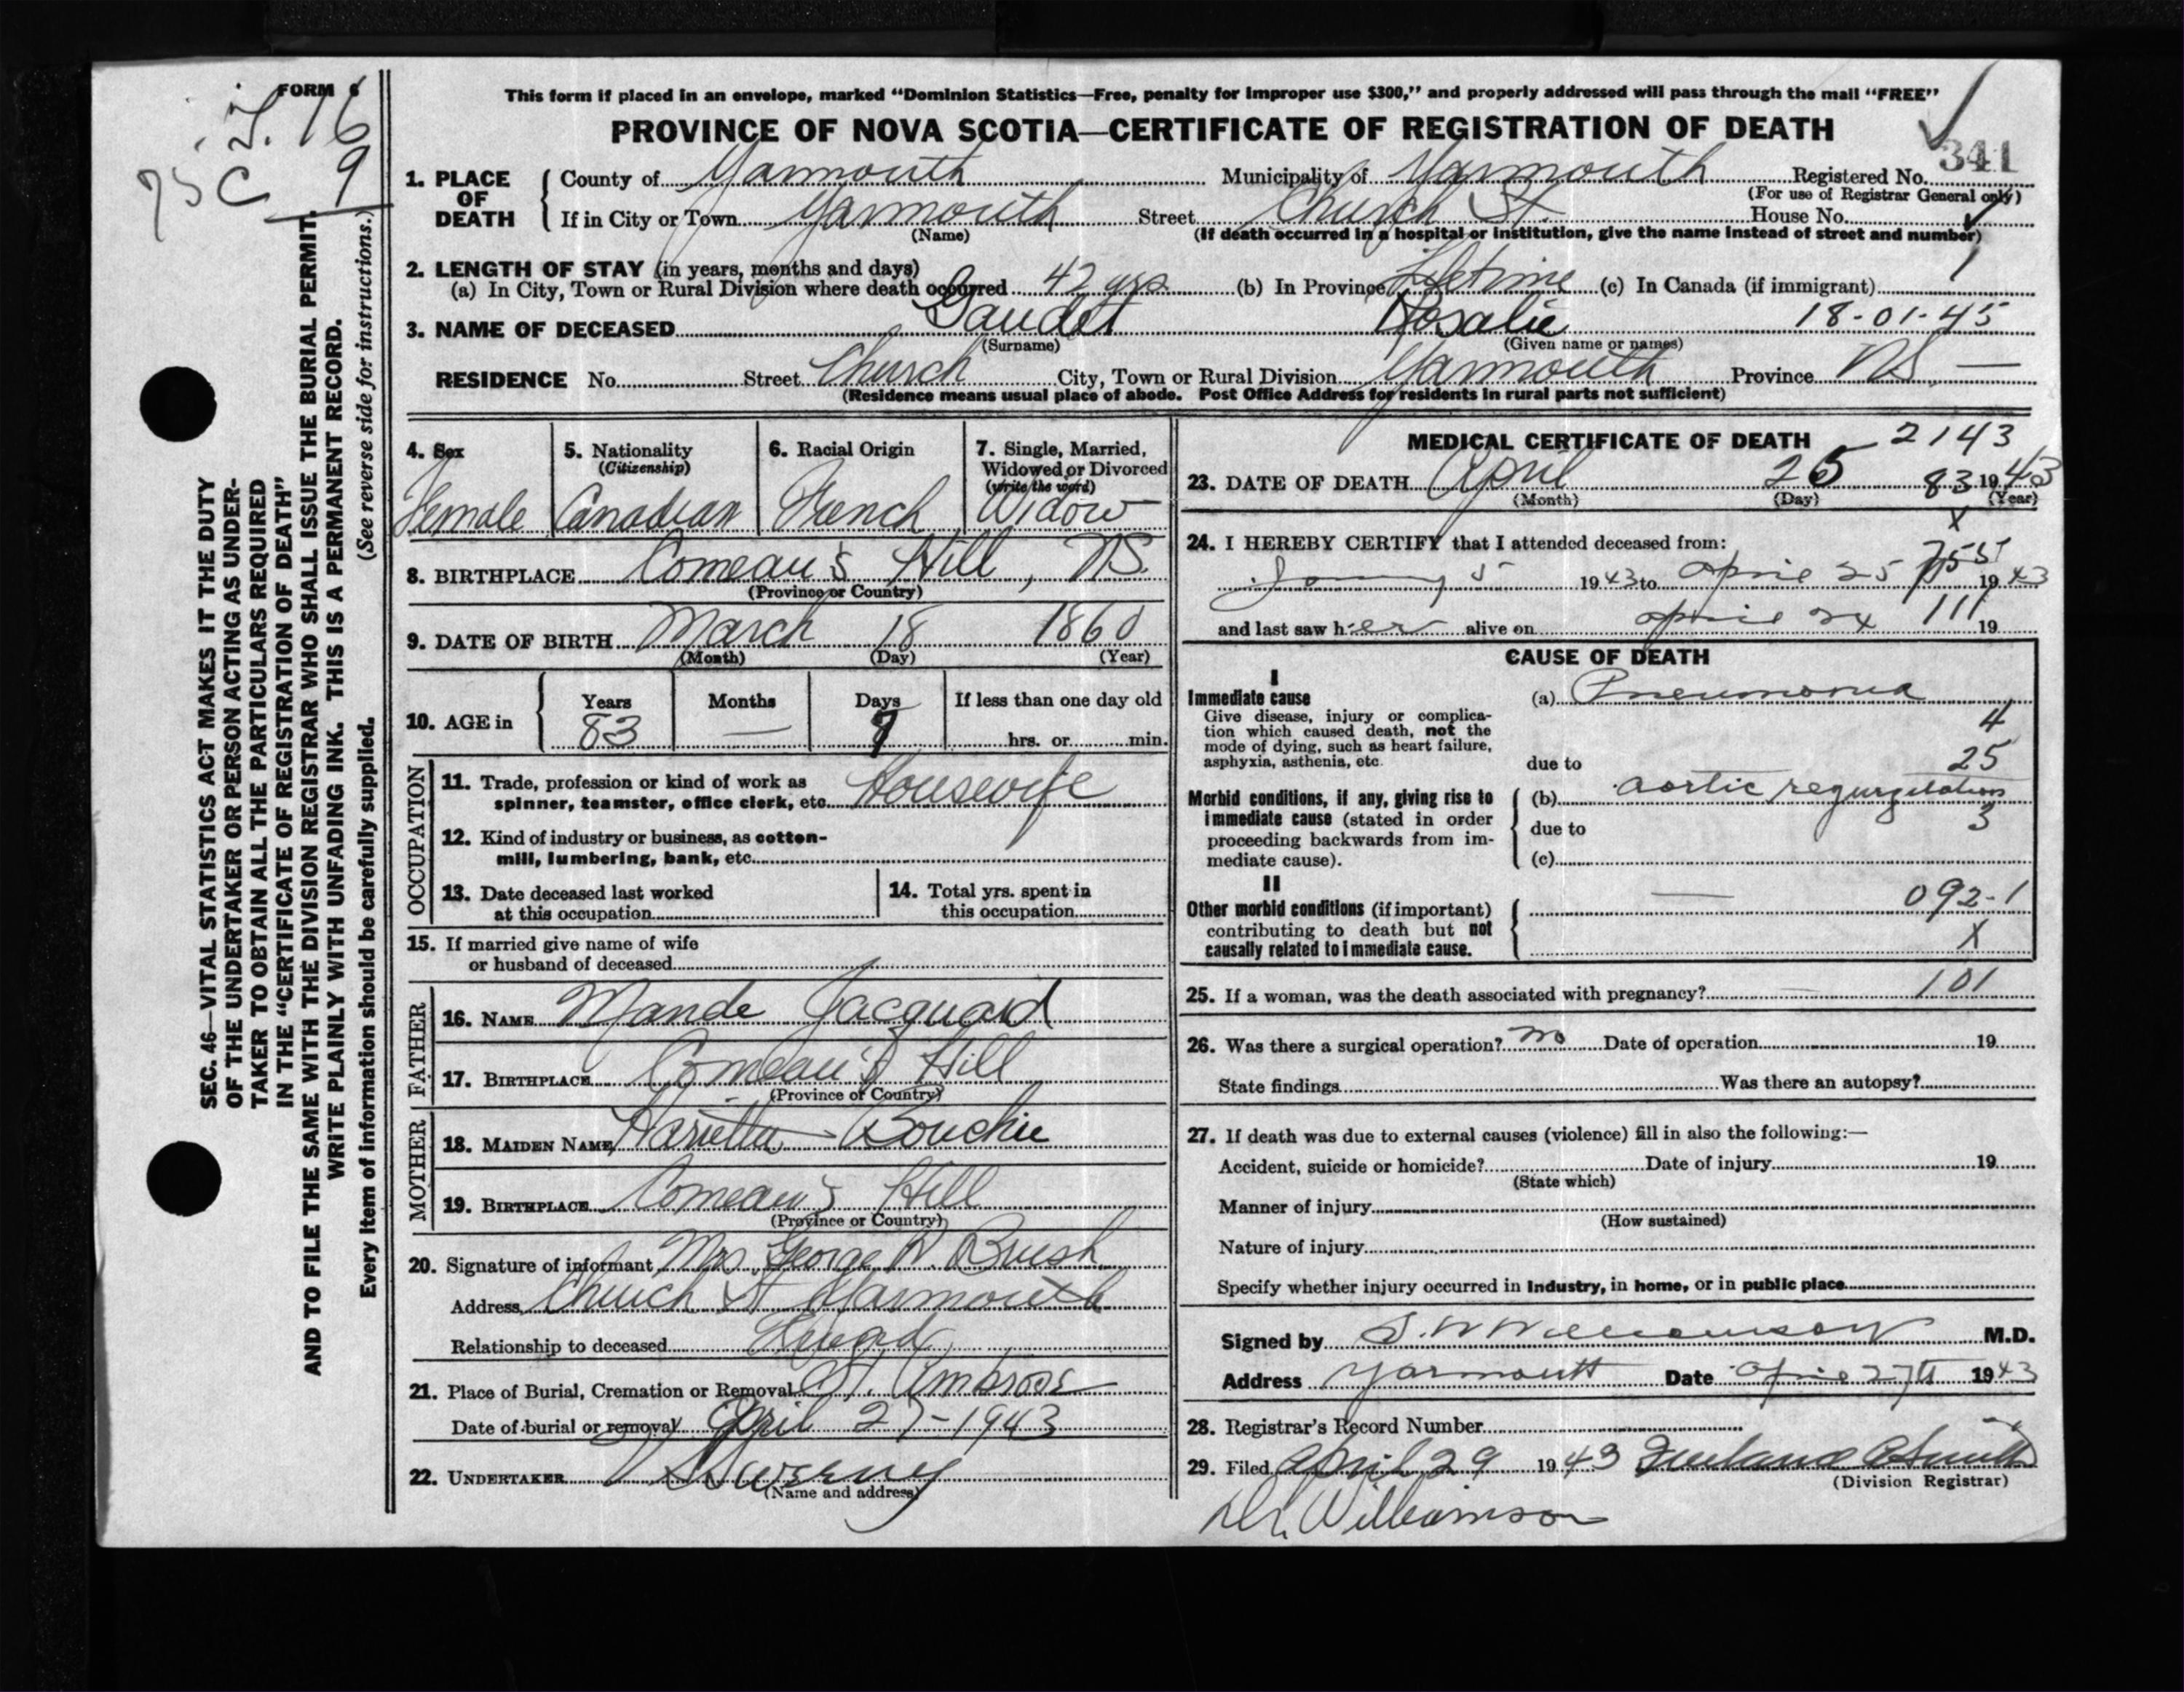 FORM 6
J. 16
75C 9
SEC. 46—VITAL STATISTICS ACT MAKES IT THE DUTY
OF THE UNDERTAKER OR PERSON ACTING AS UNDER-
TAKER TO OBTAIN ALL THE PARTICULARS REQUIRED
IN THE "CERTIFICATE OF REGISTRATION OF DEATH"
AND TO FILE THE SAME WITH THE DIVISION REGISTRAR WHO SHALL ISSUE THE BURIAL PERMIT.
WRITE PLAINLY WITH UNFADING INK. THIS IS A PERMANENT RECORD.
Every item of information should be carefully supplied. (See reverse side for instructions.)
This form if placed in an envelope, marked "Dominion Statistics—Free, penalty for improper use $300," and properly addressed will pass through the mail "FREE"
PROVINCE OF NOVA SCOTIA—CERTIFICATE OF REGISTRATION OF DEATH
341
1. PLACE OF DEATH County of Yarmouth Municipality of Yarmouth Registered No.
(For use of Registrar General only)
If in City or Town Yarmouth Street Church St. House No.
(Name) (If death occurred in a hospital or institution, give the name instead of street and number)
2. LENGTH OF STAY (in years, months and days)
(a) In City, Town or Rural Division where death occurred 42 yrs (b) In Province Lifetime (c) In Canada (if immigrant)
3. NAME OF DECEASED Gaudet Rosalie 18-01-45
(Surname) (Given name or names)
RESIDENCE No. Street Church City, Town or Rural Division Yarmouth Province NS. —
(Residence means usual place of abode. Post Office Address for residents in rural parts not sufficient)
4. Sex 5. Nationality 6. Racial Origin 7. Single, Married,
(Citizenship) Widowed or Divorced
(write the word)
Female Canadian French Widow
8. BIRTHPLACE Comeau's Hill, NS.
(Province or Country)
9. DATE OF BIRTH March 18 1860
(Month) (Day) (Year)
10. AGE in Years Months Days If less than one day old
83 — 9 hrs. or min.
OCCUPATION
11. Trade, profession or kind of work as
spinner, teamster, office clerk, etc. Housewife
12. Kind of industry or business, as cotton-
mill, lumbering, bank, etc.
13. Date deceased last worked
at this occupation
14. Total yrs. spent in
this occupation
15. If married give name of wife
or husband of deceased
FATHER
16. NAME Mande Jacquard
17. BIRTHPLACE Comeau's Hill
(Province or Country)
MOTHER
18. MAIDEN NAME Harietta Bouchie
19. BIRTHPLACE Comeau's Hill
(Province or Country)
20. Signature of informant Mrs. George R. Brush
Address Church St Yarmouth
Relationship to deceased Friend
21. Place of Burial, Cremation or Removal St. Ambrose
Date of burial or removal April 27-1943
22. UNDERTAKER Sweeny
(Name and address)
MEDICAL CERTIFICATE OF DEATH 2143
23. DATE OF DEATH April 25 83 1943
(Month) (Day) (Year)
X
24. I HEREBY CERTIFY that I attended deceased from:
January 5 1943 to April 25 1943
and last saw her alive on April 24 111 19
CAUSE OF DEATH
I
Immediate cause (a) Pneumonia
Give disease, injury or complica-
tion which caused death, not the
mode of dying, such as heart failure,
asphyxia, asthenia, etc.
4
due to 25
Morbid conditions, if any, giving rise to
immediate cause (stated in order
proceeding backwards from im-
mediate cause).
(b) aortic regurgitation
due to 3
(c)
II
Other morbid conditions (if important)
contributing to death but not
causally related to immediate cause.
— 092-1
X
25. If a woman, was the death associated with pregnancy? — 101
26. Was there a surgical operation? no Date of operation 19
State findings Was there an autopsy?
27. If death was due to external causes (violence) fill in also the following:—
Accident, suicide or homicide? Date of injury 19
(State which)
Manner of injury
(How sustained)
Nature of injury
Specify whether injury occurred in industry, in home, or in public place
Signed by S. W Williamson M.D.
Address Yarmouth Date April 27th 1943
28. Registrar's Record Number
29. Filed April 29 1943 Smith
(Division Registrar)
Dr. Williamson